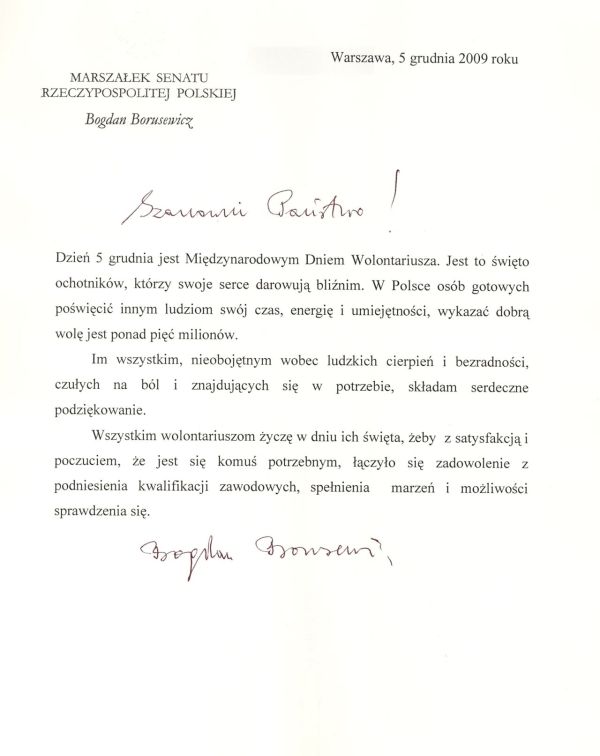 Warszawa, 5 grudnia 2009 roku
MARSZAŁEK SENATU
RZECZYPOSPOLITEJ POLSKIEJ
Bogdan Borusewicz
Szanowni Państwo!
Dzień 5 grudnia jest Międzynarodowym Dniem Wolontariusza. Jest to święto
ochotników, którzy swoje serce darowują bliźnim. W Polsce osób gotowych
poświęcić innym ludziom swój czas, energię i umiejętności, wykazać dobrą
wolę jest ponad pięć milionów.
Im wszystkim, nieobojętnym wobec ludzkich cierpień i bezradności,
czułych na ból i znajdujących się w potrzebie, składam serdeczne
podziękowanie.
Wszystkim wolontariuszom życzę w dniu ich święta, żeby z satysfakcją i
poczuciem, że jest się komuś potrzebnym, łączyło się zadowolenie z
podniesienia kwalifikacji zawodowych, spełnienia marzeń i możliwości
sprawdzenia się.
Bogdan Borusewicz